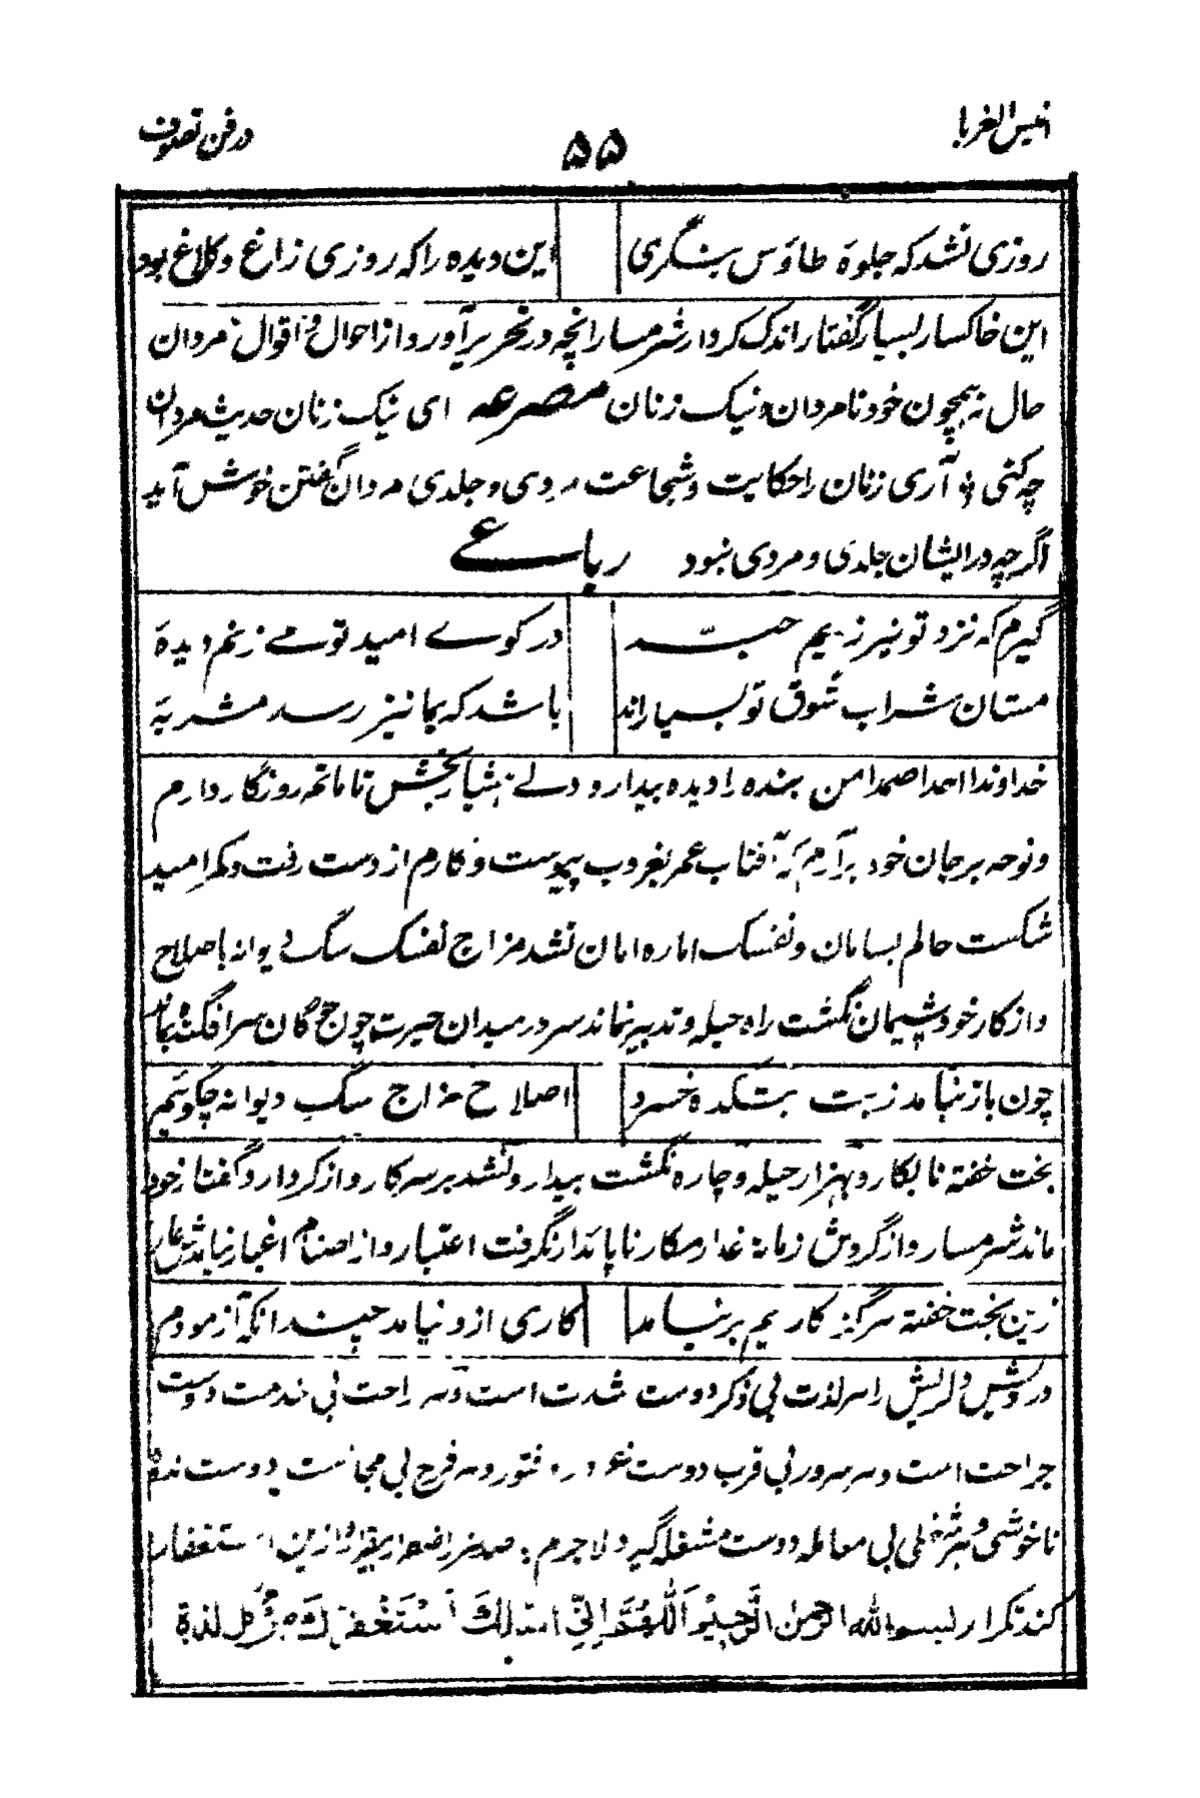 انیس الغربا ۵۵ در فن تصوف
روزی نشد که جلوهٔ طاؤس بنگری این دیده را که روزی زاغ و کلاغ بود
این خاکسار بسیار گفتار اندک کردار شرمسار انچه در تحریر آورد از احوال و اقوال مردان
حال نه همچون خود نامردان و نیک زنان مصرعه ای نیک زنان حدیث مردان
چه کنی ؛ آری زنان را حکایت و شجاعت مردی و جلدی مردان گفتن خوش آید
اگرچه در ایشان جلدی و مردی نبود رباعے
گیرم که نزد تو نیرزیم حبّه در کوے امید تو مے زنم دیدهٔ
مستان شراب شوق تو بسیاراند باشد که بما نیز رسد مشربهٔ
خداوندا احدا صمدا من بنده را دیده بیدار و دلے هشیار بخش تا ماتم روزگار دارم
و نوحه بر جان خود برآرم که آفتاب عمر بغروب پیوست و کارم از دست رفت و کمر امید
شکست حالم بسامان و نفسک اماره امان نشد مزاج نفسک سگ دیوانه باصلاح
و از کار خود پشیمان نگشت راه حیله و تدبیر نماند سر در میدان حیرت چو چوگان سرافگنده بماند
چون باز نیامد ز بت بتکده خسرو اصلاح مزاج سگ دیوانه چگوئیم
بخت خفته نابکار و بهزار حیله و چاره نگشت بیدار و نشد بر سر کار و از کردار و گفتار خود
ماند شرمسار و از گردش زمانه غدار مکار ناپائدار نگرفت اعتبار و از اصنام اغیار نیامدش عار
زین بخت خفته سرگز کاریم بر نیامد کاری ازو نیامد چندانکه آزمودم
درویش دلریش را سر لذت بی ذکر دوست شدت است و سر راحت بی خدمت دوست
جراحت است و سر سرور بی قرب دوست و سر فرح بی مجانست دوست
ناخوشی و سر شغلی بی معامله دوست مشغله گیرد لاجرم ازین استغفار
کند تکرار بسم الله الرحمن الرحیم اَللّٰهُمَّ اِنِّی اَسْتَغْفِرُكَ مِنْ كُلِّ لذة